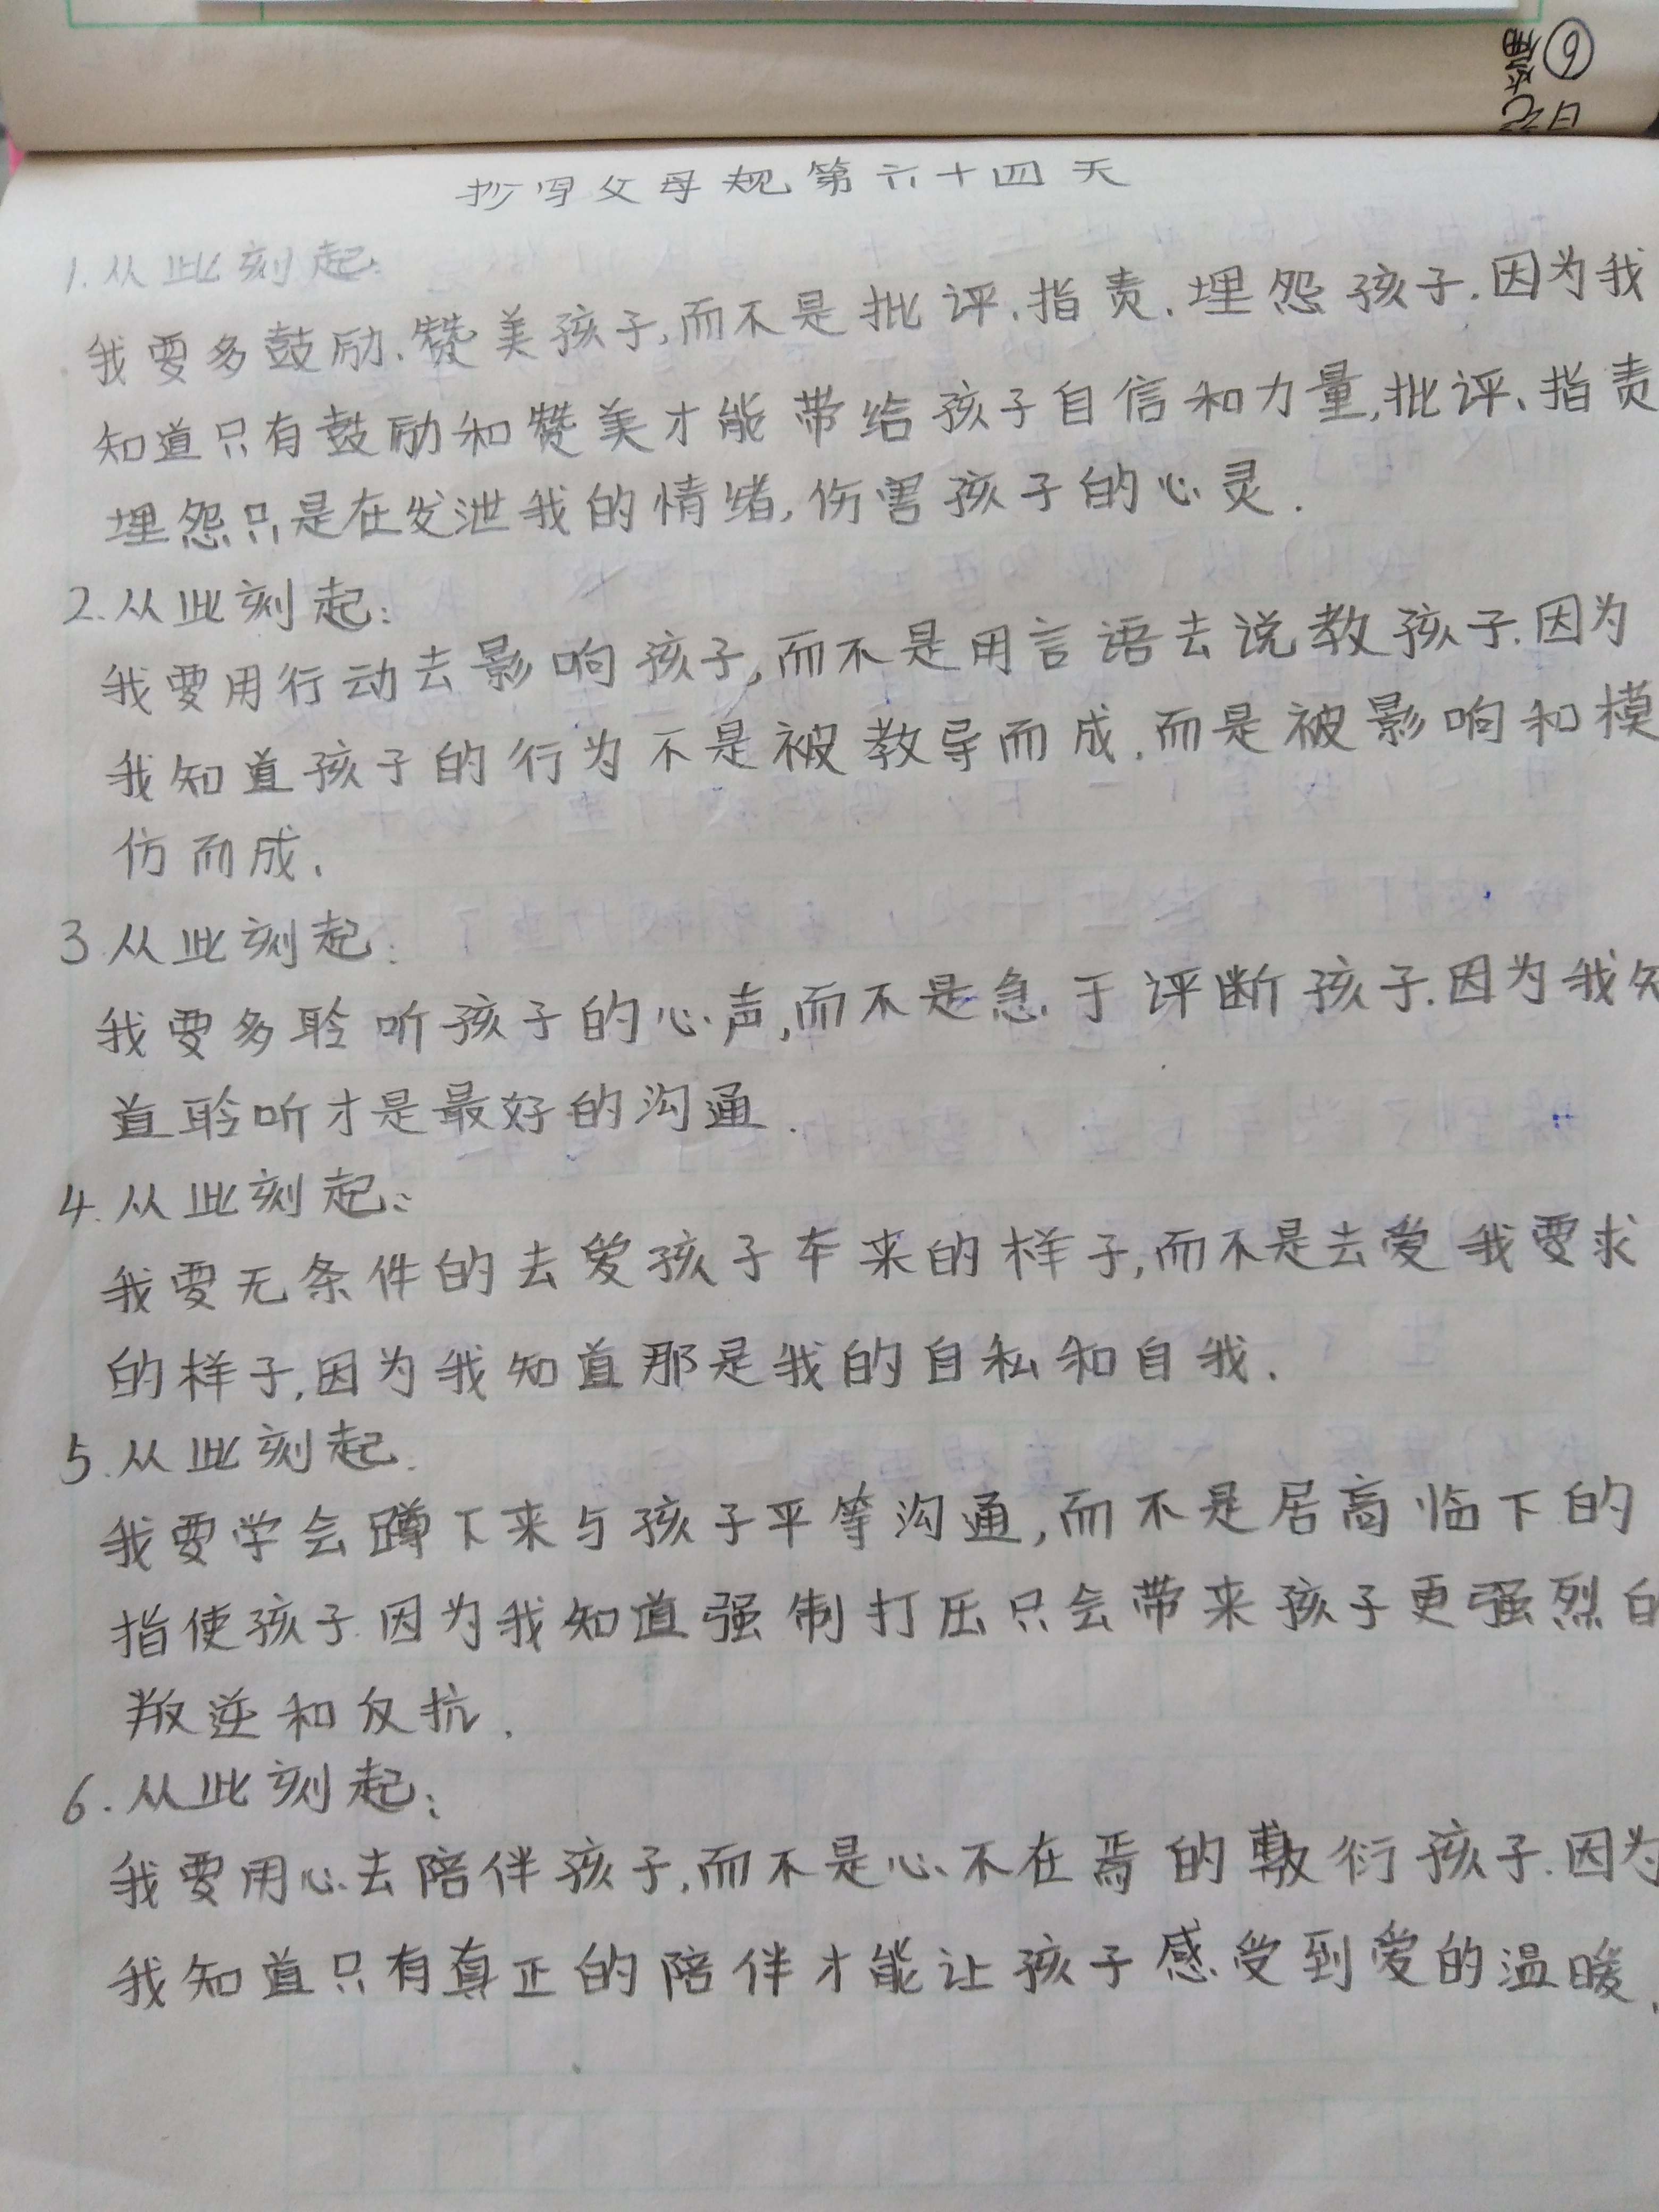 抄写父母规第六十四天
1.从此刻起:
我要多鼓励、赞美孩子,而不是批评、指责、埋怨孩子.因为我
知道只有鼓励和赞美才能带给孩子自信和力量,批评、指责
埋怨只是在发泄我的情绪,伤害孩子的心灵.
2.从此刻起:
我要用行动去影响孩子,而不是用言语去说教孩子.因为
我知道孩子的行为不是被教导而成,而是被影响和模
仿而成.
3.从此刻起:
我要多聆听孩子的心声,而不是急于评断孩子.因为我知
道聆听才是最好的沟通.
4.从此刻起:
我要无条件的去爱孩子本来的样子,而不是去爱我要求
的样子,因为我知道那是我的自私和自我.
5.从此刻起.
我要学会蹲下来与孩子平等沟通,而不是居高临下的
指使孩子.因为我知道强制打压只会带来孩子更强烈的
叛逆和反抗.
6.从此刻起:
我要用心去陪伴孩子,而不是心不在焉的敷衍孩子.因为
我知道只有真正的陪伴才能让孩子感受到爱的温暖.